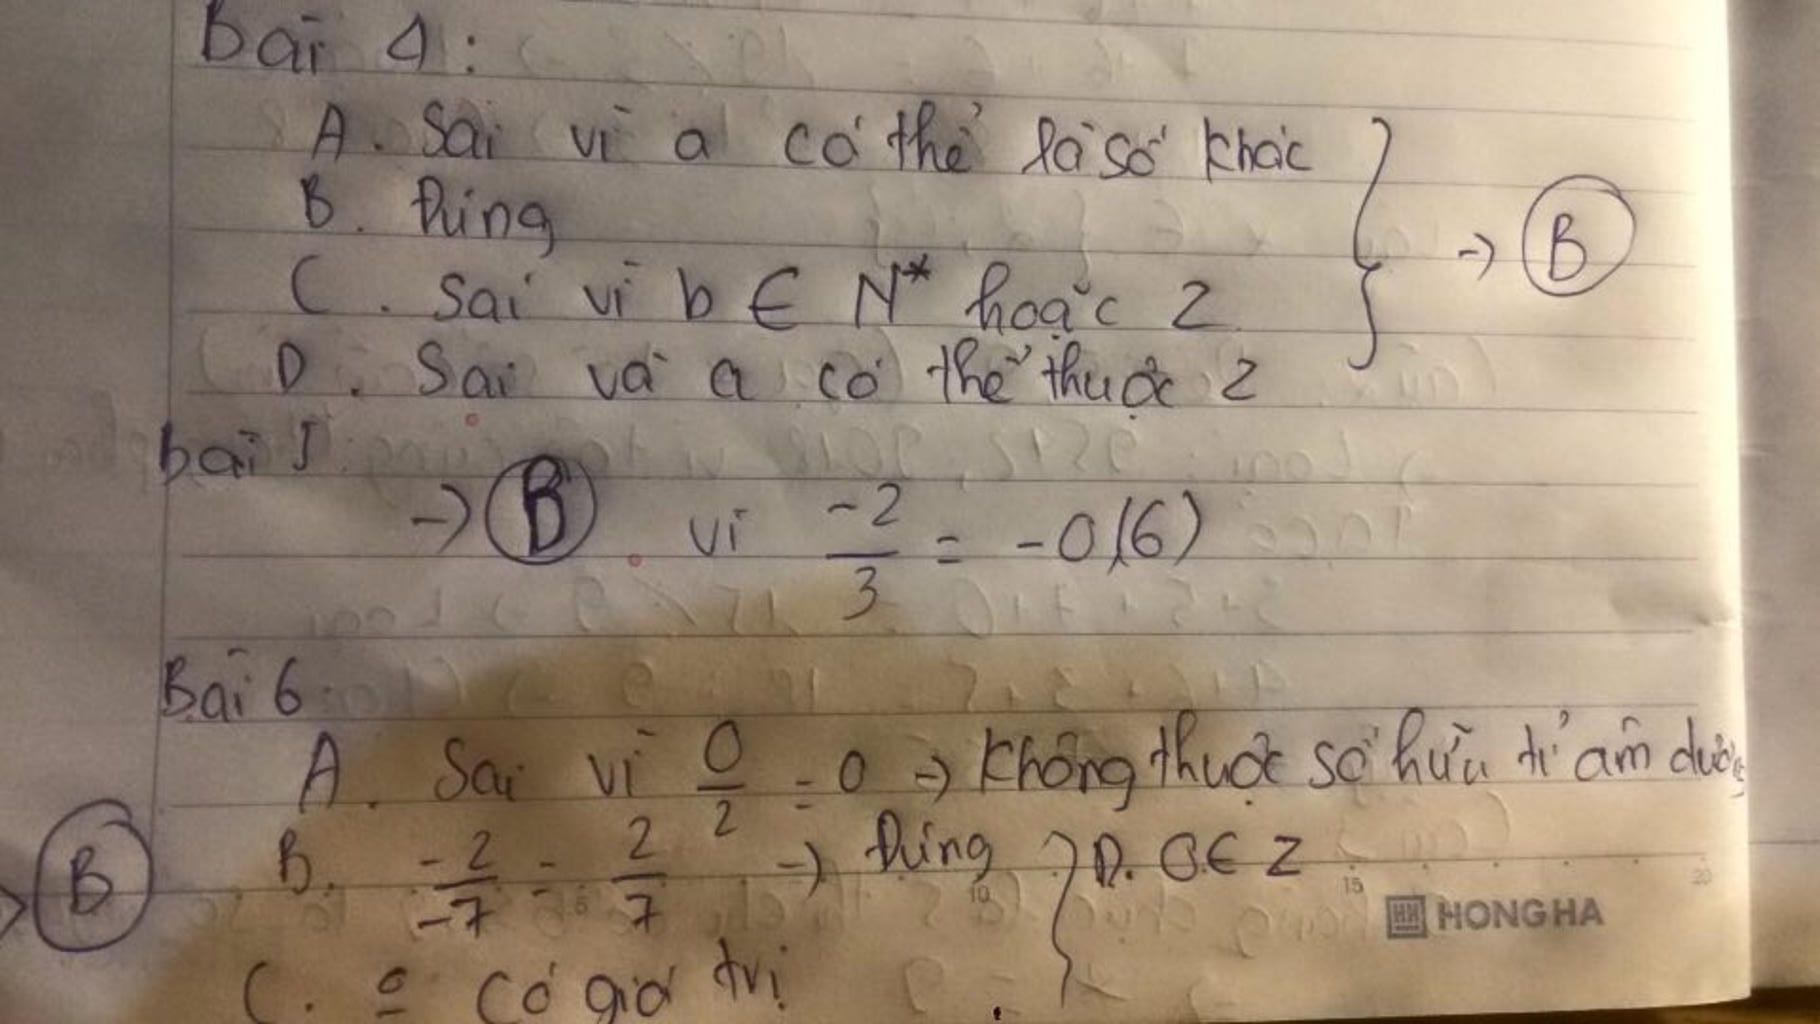 Bài 4:
A. Sai vì a có thể là số khác
B. Đúng
C. Sai vì b ∈ N* hoặc Z
D. Sai và a có thể thuộc Z
→ B
bài 5:
→ B. vì -2/3 = -0,(6)
Bài 6:
A. Sai vì 0/2 = 0 → không thuộc số hữu tỉ âm dương
B. -2/-7 = 2/7 → Đúng
D. 0 ∈ Z
→ B
HONG HA
C. có giá trị